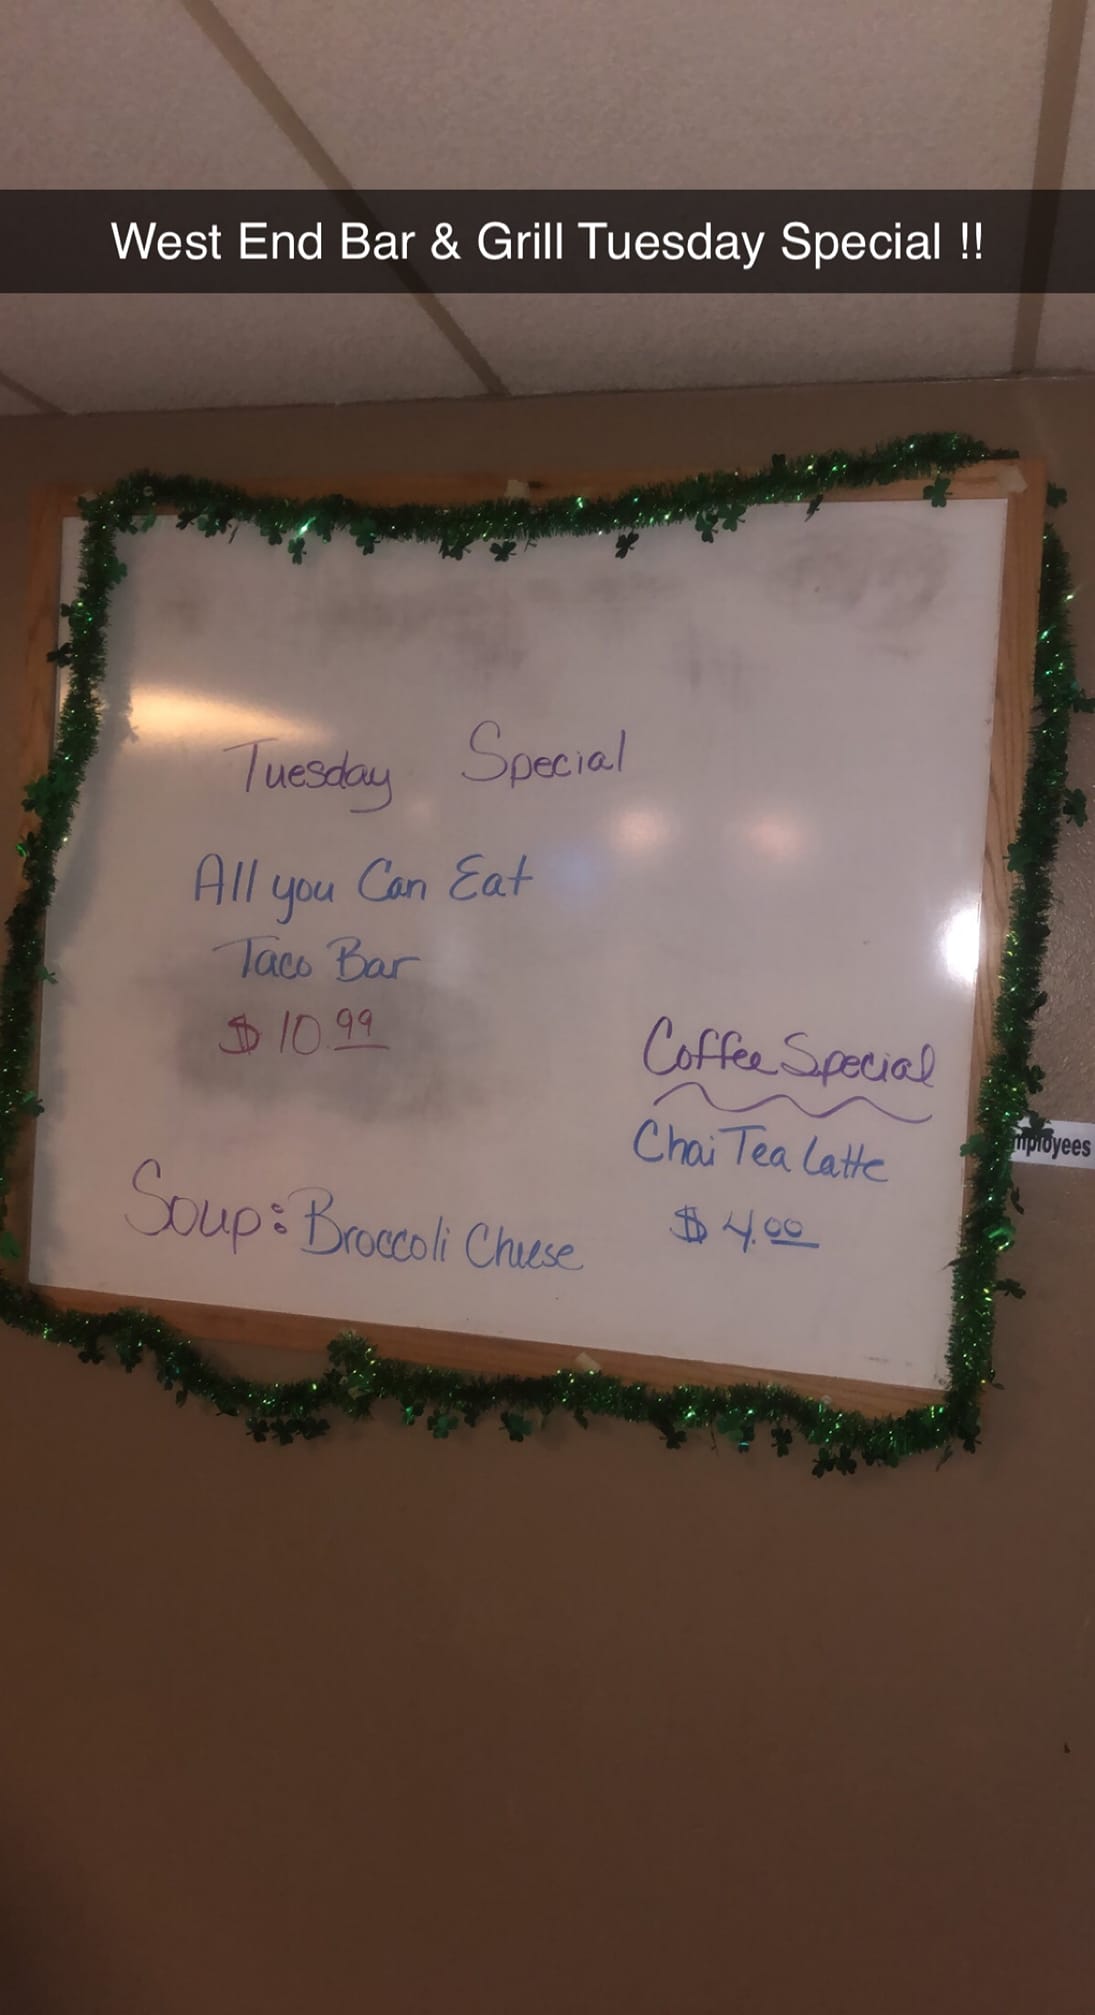 West End Bar & Grill Tuesday Special !!
Tuesday Special
All you Can Eat
Taco Bar
$10.99
Coffee Special
Chai Tea Latte
$4.00
Soup: Broccoli Cheese
mployees